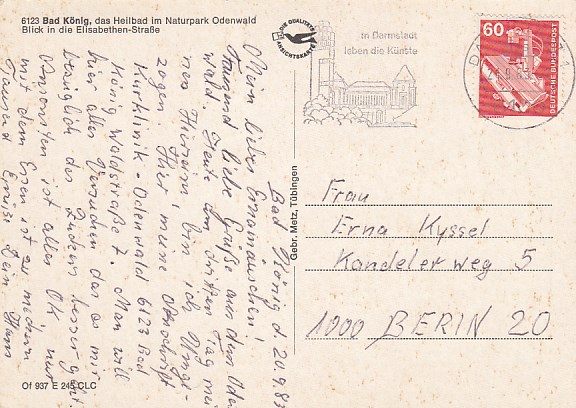 6123 Bad König, das Heilbad im Naturpark Odenwald
Blick in die Elisabethen-Straße
DIE QUALITÄTS
ANSICHTSKARTE
in Darmstadt
leben die Künste
60
DEUTSCHE BUNDESPOST
Bad König d. 20.9.83
Mein liebes Ernamäuschen!
Tausend liebe Grüße aus dem Oden
wald. Heute am dritten Tag mei
nes Hierseins bin ich umge-
zogen. Hier meine Anschrift
Kurklinik-Odenwald 6123 Bad
König Waldstraße 7. Man will
hier alles versuchen das es mir
bezüglich des Zuckers besser geht.
Ansonsten ist alles OK nur
mit dem Essen ist zu
Tausend Grüße Dein Hans
Gebr. Metz, Tübingen
Frau
Erna Kyssel
Kandeler weg 5
1000 BERIN 20
Of 937 E 245 CLC